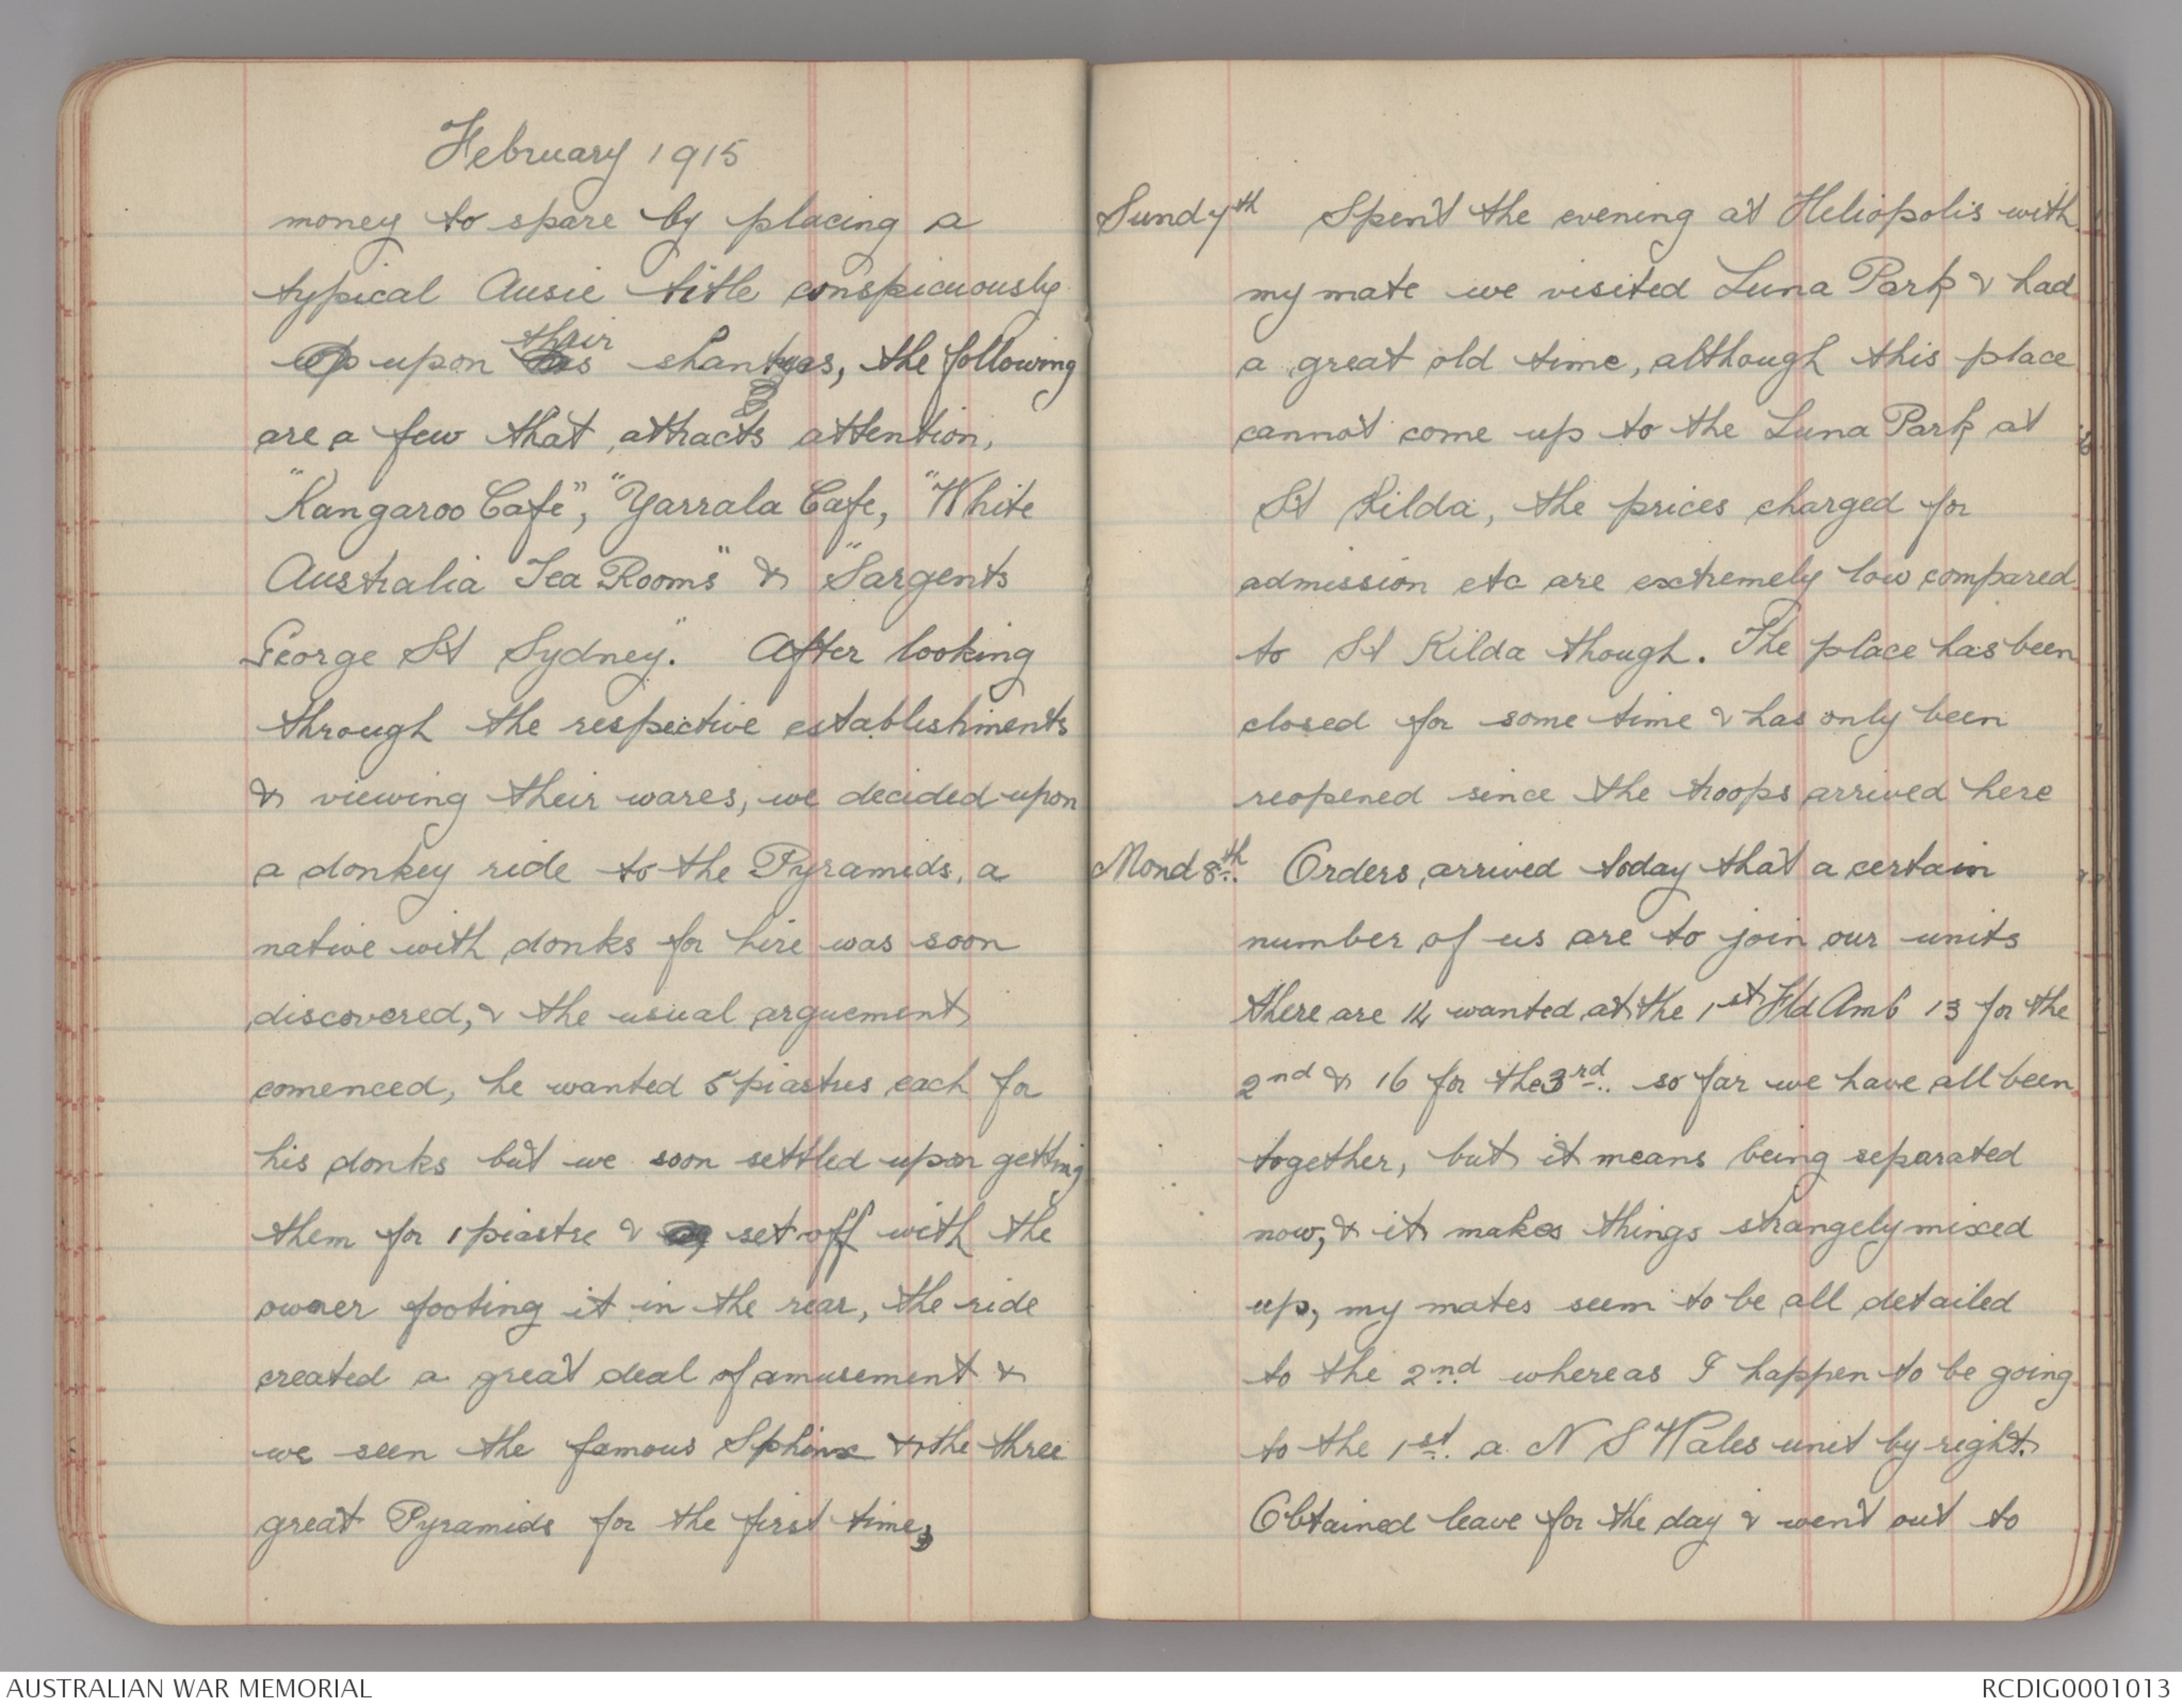 February 1915
money to spare by placing a
typical Ausie title conspicuously
upon their shantys, the following
are a few that attracts attention,
"Kangaroo Cafe", "Yarrala Cafe, "White
Australia Tea Rooms" & "Sargents
George St Sydney". After looking
through the respective establishments
& viewing their wares, we decided upon
a donkey ride to the Pyramids, a
native with donks for hire was soon
discovered, & the usual arguement
comenced, he wanted 5 piastres each for
his donks but we soon settled upon getting
them for 1 piastre & set off with the
owner footing it in the rear, the ride
created a great deal of amusement &
we seen the famous Sphinx & the three
great Pyramids for the first time,
Sund 7th Spent the evening at Heliopolis with
my mate we visited Luna Park & had
a great old time, although this place
cannot come up to the Luna Park at
St Kilda, the prices charged for
admission etc are extremely low compared
to St Kilda though. The place has been
closed for some time & has only been
reopened since the troops arrived here
Mond 8th. Orders arrived today that a certain
number of us are to join our units
there are 14 wanted at the 1st Fld Amb 13 for the
2nd & 16 for the 3rd. so far we have all been
together, but it means being separated
now, & it makes things strangely mixed
up, my mates seem to be all detailed
to the 2nd whereas I happen to be going
to the 1st. a N S Wales unit by right.
Obtained leave for the day & went out to
AUSTRALIAN WAR MEMORIAL
RCDIG0001013